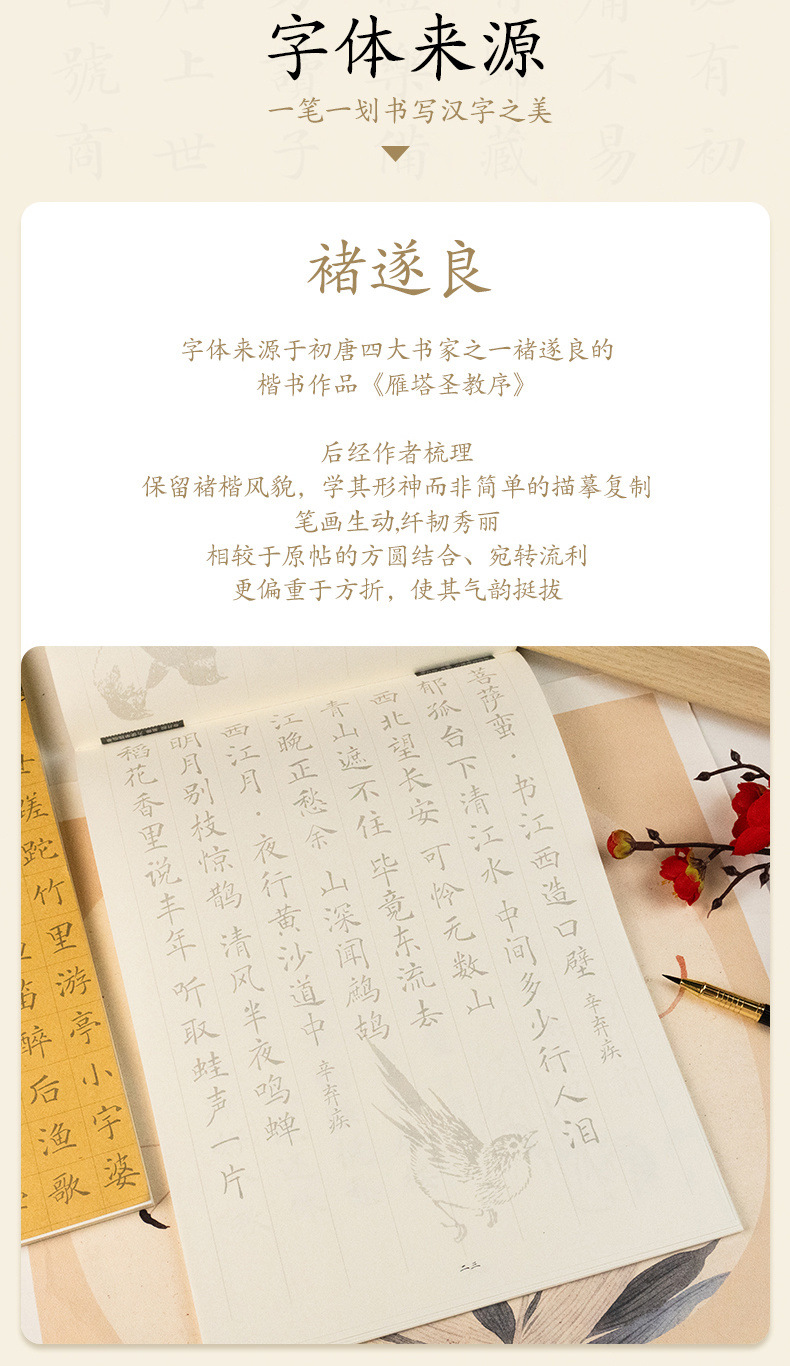 字体来源
一笔一划书写汉字之美
號 上 不 有
商 世 子 備 藏 易 初
褚遂良
字体来源于初唐四大书家之一褚遂良的
楷书作品《雁塔圣教序》
后经作者梳理
保留褚楷风貌，学其形神而非简单的描摹复制
笔画生动,纤韧秀丽
相较于原帖的方圆结合、宛转流利
更偏重于方折，使其气韵挺拔
菩萨蛮·书江西造口壁 辛弃疾
郁孤台下清江水 中间多少行人泪
西北望长安 可怜无数山
青山遮不住 毕竟东流去
江晚正愁余 山深闻鹧鸪
西江月·夜行黄沙道中 辛弃疾
明月别枝惊鹊 清风半夜鸣蝉
稻花香里说丰年 听取蛙声一片
二三
蹉跎竹里游亭小宇婆
笛醉后渔歌